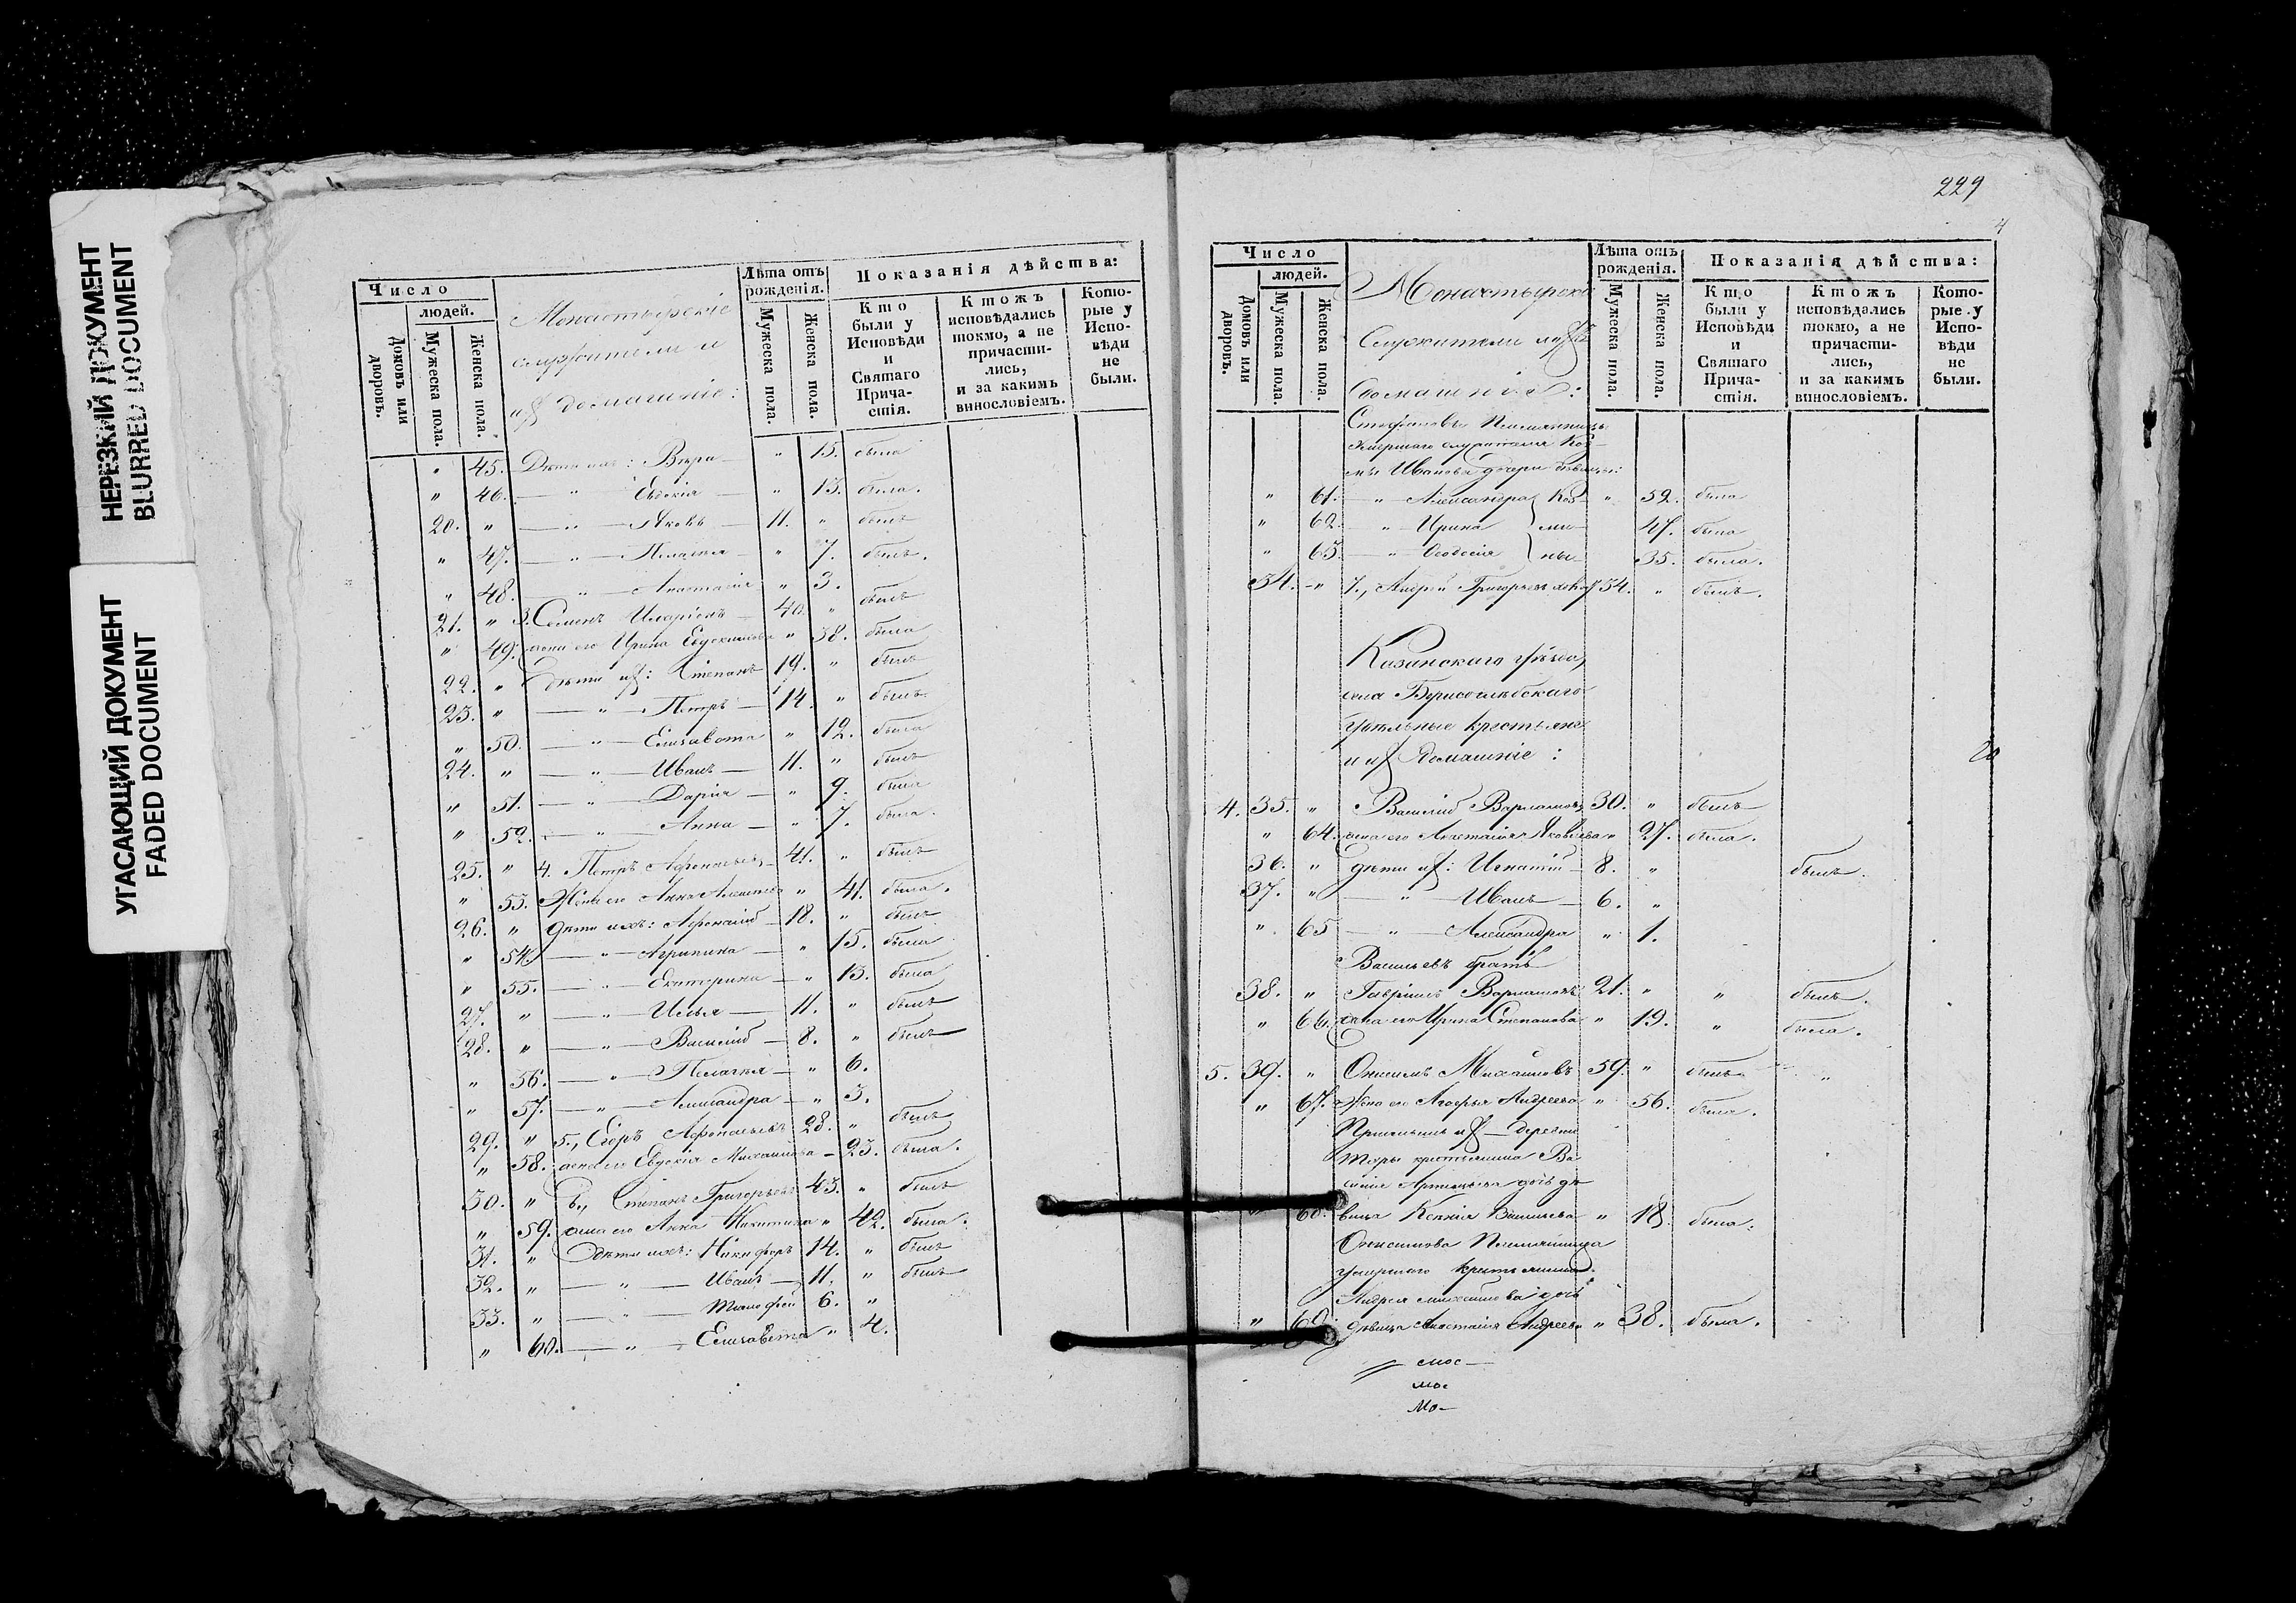 НЕРЕЗКИЙ ДОКУМЕНТ
BLURRED DOCUMENT
УГАСАЮЩИЙ ДОКУМЕНТ
FADED DOCUMENT
Число
людей.
Домовъ или дворовъ.
Мужеска пола.
Женска пола.
Монастырскіе
служители и
ихъ домашніе:
Лѣта отъ рожденія.
Мужеска пола.
Женска пола.
Показанія дѣйства:
Кто были у Исповѣди и Святаго Причастія.
Ктожъ исповѣдались токмо, а не причастились, и за какимъ винословіемъ.
Которые у Исповѣди не были.
" 45. Дѣти ихъ: Вѣра " 15. была
" 46. — " — Евдокія — " 13. была.
20. " — " — Яковъ — 11. " былъ
" 47. — " — Пелагея — " 7. былъ.
" 48. — " — Анастасія " 3.
21. " 3. Семенъ Иларіонъ 40. " былъ
" 49. жена его Ирина Евдокимова " 38. была
22. " дѣти ихъ: Степанъ 19. " былъ
23. " — " — Петръ — 14. " былъ
" 50. — " — Елисавета " 12. была
24. " — " — Иванъ — 11. " былъ
" 51. — " — Дарія — " 9. была
" 52. — " — Анна — " 7. была.
25. " 4. Петръ Афонасьевъ 41. " былъ
" 53. Жена его Анна " 41. была.
26. " дѣти ихъ: Афонасій — 18. " былъ
" 54. — " — Агрипина — " 15. была
" 55. — " — Екатерина — " 13. была
27. " — " — Илья — 11. " былъ
28. " — " — Василій — 8. " былъ
" 56. — " — Пелагея — " 6.
" 57. — " — Александра — " 3.
29. " 5., Егоръ Афонасьевъ 28. " былъ
" 58. жена его Евдокія Михаилова — 23. была.
30. " 6., Степанъ Григорьевъ 43. " былъ
" 59. жена его Анна Никитина " 42. была.
31. " Дѣти ихъ: Никифоръ 14. " былъ
32. " — " — Иванъ — 11. " былъ
33. " — " — Тимофей 6. "
" 60. — " — Елисавета " 4.
229
4
Число
людей.
Домовъ или дворовъ.
Мужеска пола.
Женска пола.
Монастырскіе
Служители и ихъ
домашніе:
Лѣта отъ рожденія.
Мужеска пола.
Женска пола.
Показанія дѣйства:
Кто были у Исповѣди и Святаго Причастія.
Ктожъ исповѣдались токмо, а не причастились, и за какимъ винословіемъ.
Которые у Исповѣди не были.
Стефановы Племянницы
Умершаго служителя Коз-
мы Иванова дочери дѣвицы:
" 61. — " Александра Коз- " 52. была
" 62. — " Ирина ми- 47. была
" 63. — " Ѳеодосія ны 35. была.
34. " 7., Андрей Григорьевъ 54. " былъ.
Казанскаго уѣзда,
села Борисоглѣбскаго
удѣльные крестьяне
и ихъ домашніе:
20
4. 35. " Василій Варламовъ 30. " былъ
" 64. жена его Анастасія Яковлева " 27. была.
36. " дѣти ихъ: Игнатій — 8. " былъ.
37. " — " — Иванъ — 6. "
" 65 — " — Александра " 1.
Васильевъ братъ
38. " Гавріилъ Варламовъ 21. " " былъ.
" 66. жена его Ирина Степанова " 19. " была.
5. 39. " Онисимъ Михаиловъ 59. " былъ "
" 67. Жена его Агафья Андреева " 56. была.
деревни
крестьянина Ва
силія дочь дѣ
" 68. вица Ксенія Васильева " 18. была.
Онисимова Племянница
умершаго крестьянина
Андрея Михаилова дочь
" 69. дѣвица Анастасія Андреева " 38. была.